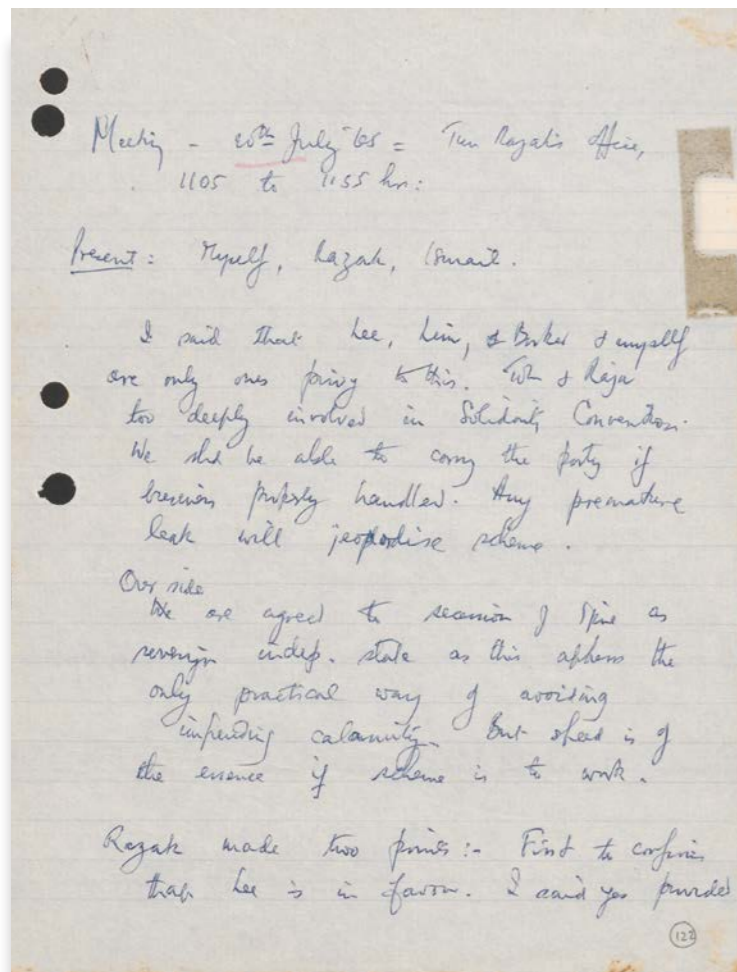 Meeting - 20th July '65 = Tun Razak's office,
1105 to 1155 hrs:
Present: Myself, Razak, Ismail.
I said that Lee, Lim, & Barker & myself
are only ones privy to this. Toh & Raja
too deeply involved in Solidarity Convention.
We shd be able to carry the party if
business properly handled. Any premature
leak will jeopardise scheme.
Our side
We are agreed to secession of S'pore as
sovereign indep. state as this appears the
only practical way of avoiding
impending calamity. But speed is of
the essence if scheme is to work.
Razak made two points:- First to confirm
that Lee is in favour. I said yes provided
122